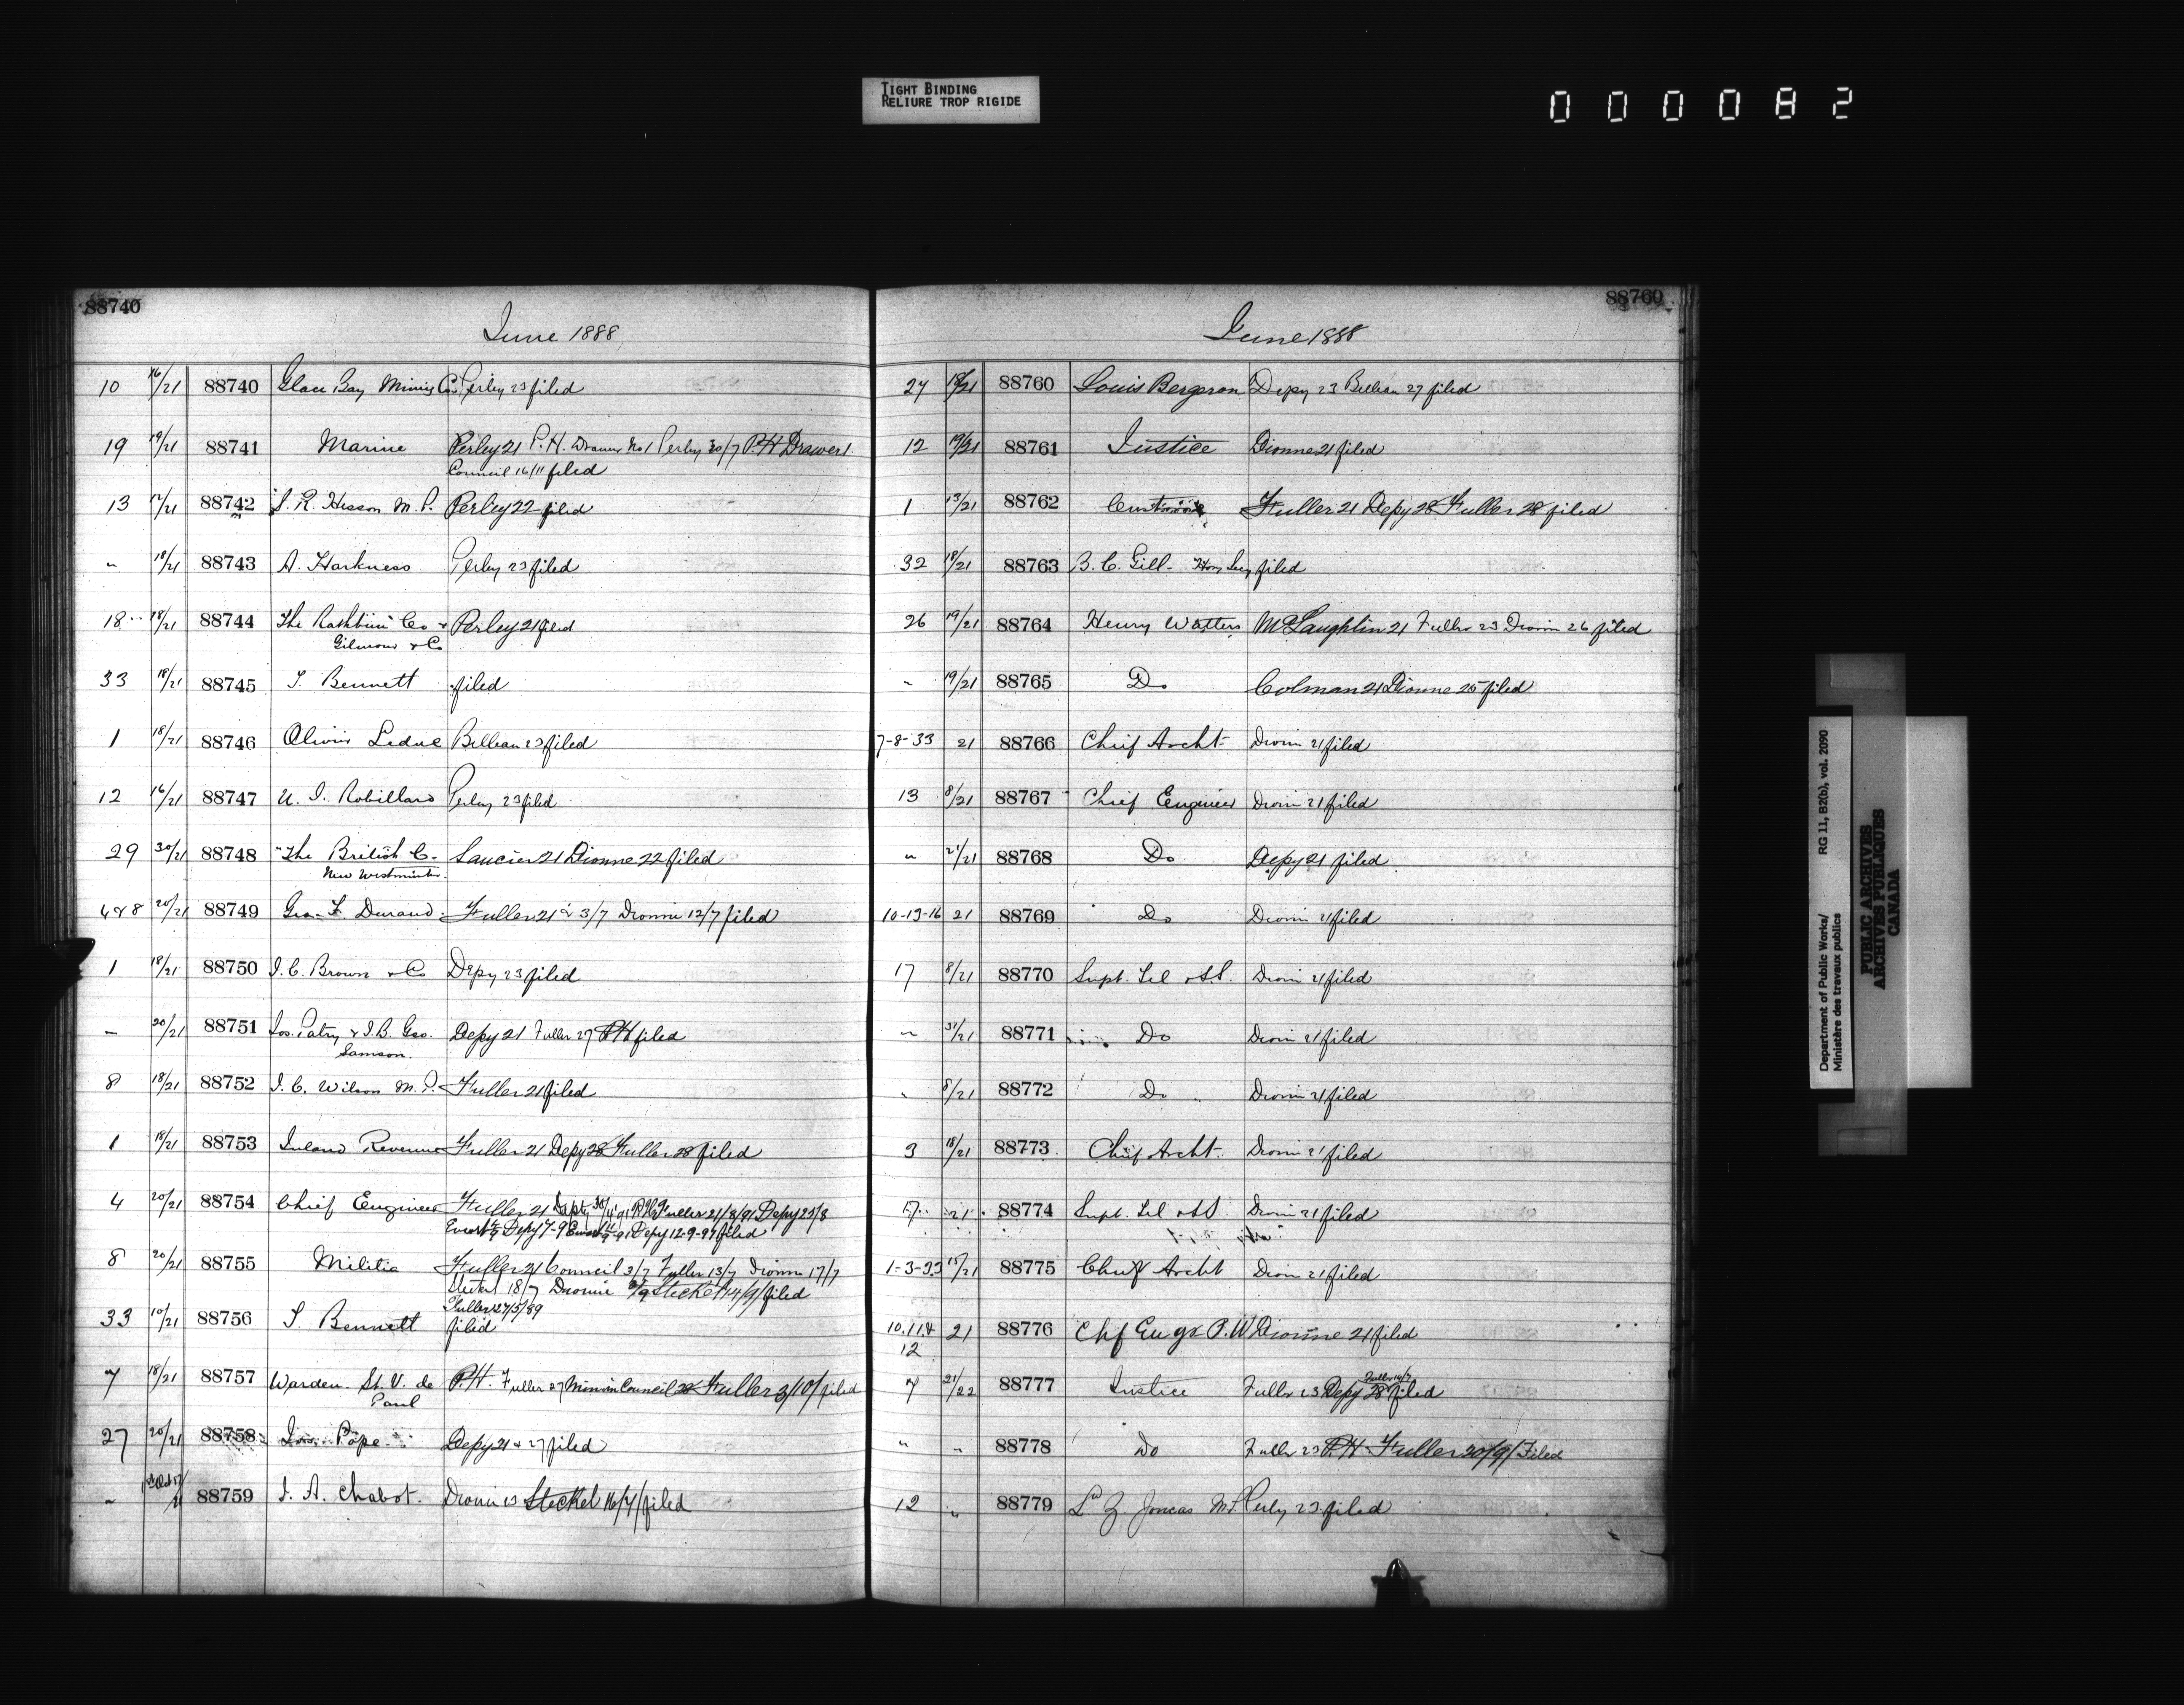 TIGHT BINDING
RELIURE TROP RIGIDE
000082
88740
June 1888
10 16/21 88740 Glace Bay Mining Co. Perley 23 filed
19 19/21 88741 Marine Perley 21 P.H. Drawer No 1 Perley 30/7 P.H Drawer 1
Council 16/11 filed
13 17/21 88742 S. R. Hesson M. P. Perley 22 filed
" 18/21 88743 A. Harkness Perley 23 filed
18 18/21 88744 The Rathbun Co & Perley 21 filed
Gilmour & Co
33 18/21 88745 T. Bennett filed
1 18/21 88746 Olivier Leduc Billeau 23 filed
12 16/21 88747 U. I. Robillard Perley 23 filed
29 30/21 88748 "The British C. Saucier 21 Dionne 22 filed
New Westminster
4 & 8 20/21 88749 Geo. F. Durand Fuller 21 & 3/7 Dionne 12/7 filed
1 18/21 88750 J. C. Brown & Co Depy 23 filed
" 20/21 88751 Jos. Patry & J.B. Geo. Depy 21 Fuller 27 P.H filed
Samson.
8 18/21 88752 J. C. Wilson M. P. Fuller 21 filed
1 18/21 88753 Inland Revenue Fuller 21 Depy 28 Fuller 28 filed
4 20/21 88754 Chief Engineer Fuller 21 Depy Fuller 21/8/91 Depy 25/8
Ewart Depy 7-9 Ewart Depy 12-9-91 filed
8 20/21 88755 Militia Fuller 21 Council 3/7 Fuller 13/7 Dionne 17/7
Steckel 18/7 Dionne Steckel 14/9/ filed
Fuller 27/5/89
33 10/21 88756 T. Bennett filed
7 18/21 88757 Warden St. V. de P.H. Fuller 27 Council 28 Fuller 3/10/ filed
Paul
27 20/21 88758 Jos. Pope Depy 21 & 27 filed
" 88759 J. A. Chabot. Dionne 23 Steckel 16/7/ filed
88760
June 1888
27 18/21 88760 Louis Bergeron Depy 23 Billeau 27 filed
12 19/21 88761 Justice Dionne 21 filed
1 13/21 88762 Customs Fuller 21 Depy 28 Fuller 28 filed
32 18/21 88763 B. C. Gill Hon Secy filed
26 19/21 88764 Henry Watters McLaughlin 21 Fuller 23 Dionne 26 filed
" 19/21 88765 Do Colman 21 Dionne 25 filed
7-8-33 21 88766 Chief Archt Dionne 21 filed
13 8/21 88767 Chief Engineer Dionne 21 filed
" 21/21 88768 Do Depy 21 filed
10-13-16 21 88769 Do Dionne 21 filed
17 8/21 88770 Supt. Tel & S.S. Dionne 21 filed
" 31/21 88771 Do Dionne 21 filed
" 8/21 88772 Do Dionne 21 filed
3 18/21 88773 Chief Archt. Dionne 21 filed
17 21 88774 Supt. Tel & S.S. Dionne 21 filed
1-3-33 15/21 88775 Chief Archt Dionne 21 filed
10.11 & 21 88776 Chf Engr P. W Dionne 21 filed
12
Fuller 14/7
7 21/22 88777 Justice Fuller 23 Depy 28 filed
" " 88778 Do Fuller 23 P.H. Fuller 20/9/ Filed
12 " 88779 Ls Z Joncas M.P. Perley 23 filed
Department of Public Works/ RG 11, B2(b), vol. 2090
Ministère des travaux publics
PUBLIC ARCHIVES
ARCHIVES PUBLIQUES
CANADA